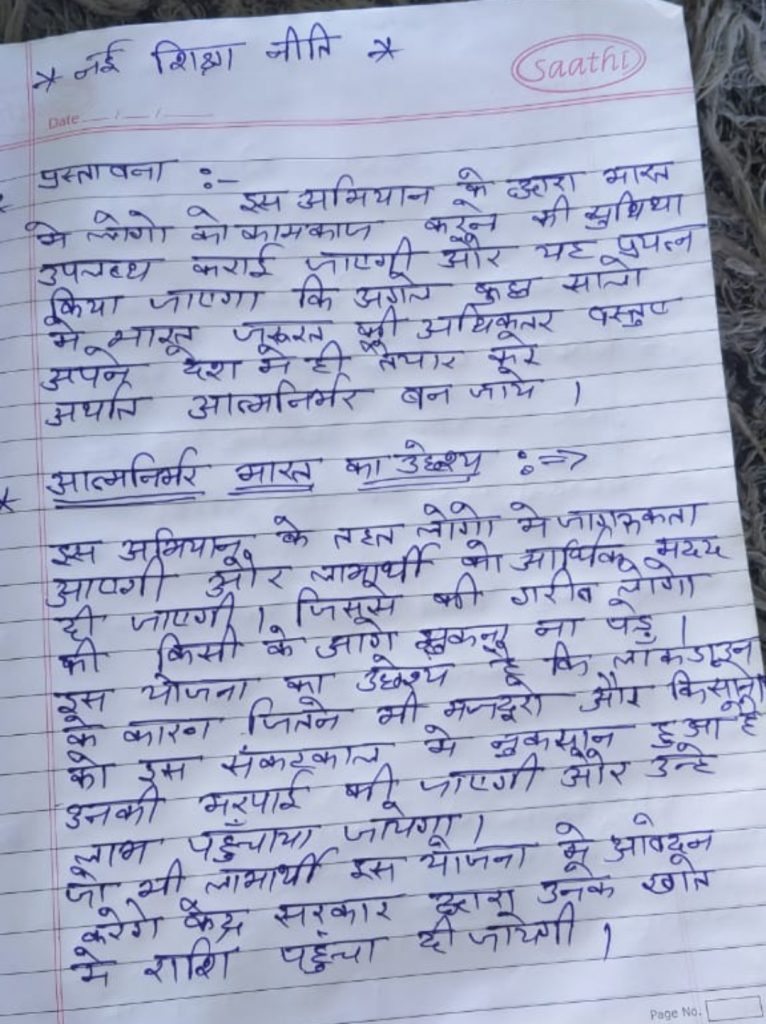 * नई शिक्षा नीति *
saathi
Date
प्रस्तावना :-
इस अभियान के द्वारा भारत
मे लोगो को कामकाज करने की सुविधा
उपलब्ध कराई जाएगी और यह प्रयत्न
किया जाएगा कि अगले कुछ सालो
मे भारत जरूरत की अधिकतर वस्तुए
अपने देश मे ही तैयार करे
अर्थात आत्मनिर्भर बन जाये ।
* आत्मनिर्भर भारत का उद्देश्य :=>
इस अभियान के तहत लोगो मे जागरूकता
आएगी और लाभार्थी को आर्थिक मदद
दी जाएगी । जिससे की गरीब लोगो
की किसी के आगे झुकना ना पड़े ।
इस योजना का उद्देश्य है कि लॉकडाउन
के कारण जितने भी मजदूरो और किसानो
को इस संकटकाल मे नुकसान हुआ है
उनकी भरपाई की जाएगी और उन्हे
लाभ पहुँचाया जायेगा ।
जो भी लाभार्थी इस योजना मे आवेदन
करेगे केंद्र सरकार द्वारा उनके खाते
मे राशि पहुंचा दी जायेगी ।
Page No.